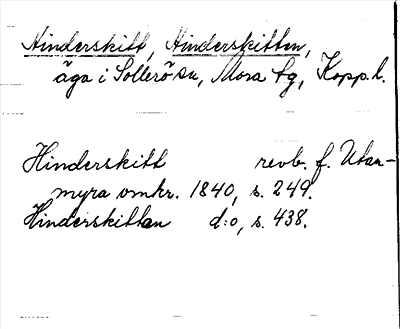 Hinderskitt, Hinderskitten,
äga i Sollerö sn, Mora tg, Kopp. l.
Hinderskitt revb. f. Utan-
myra omkr. 1840, s. 249.
Hinderskittan d:o, s. 438.